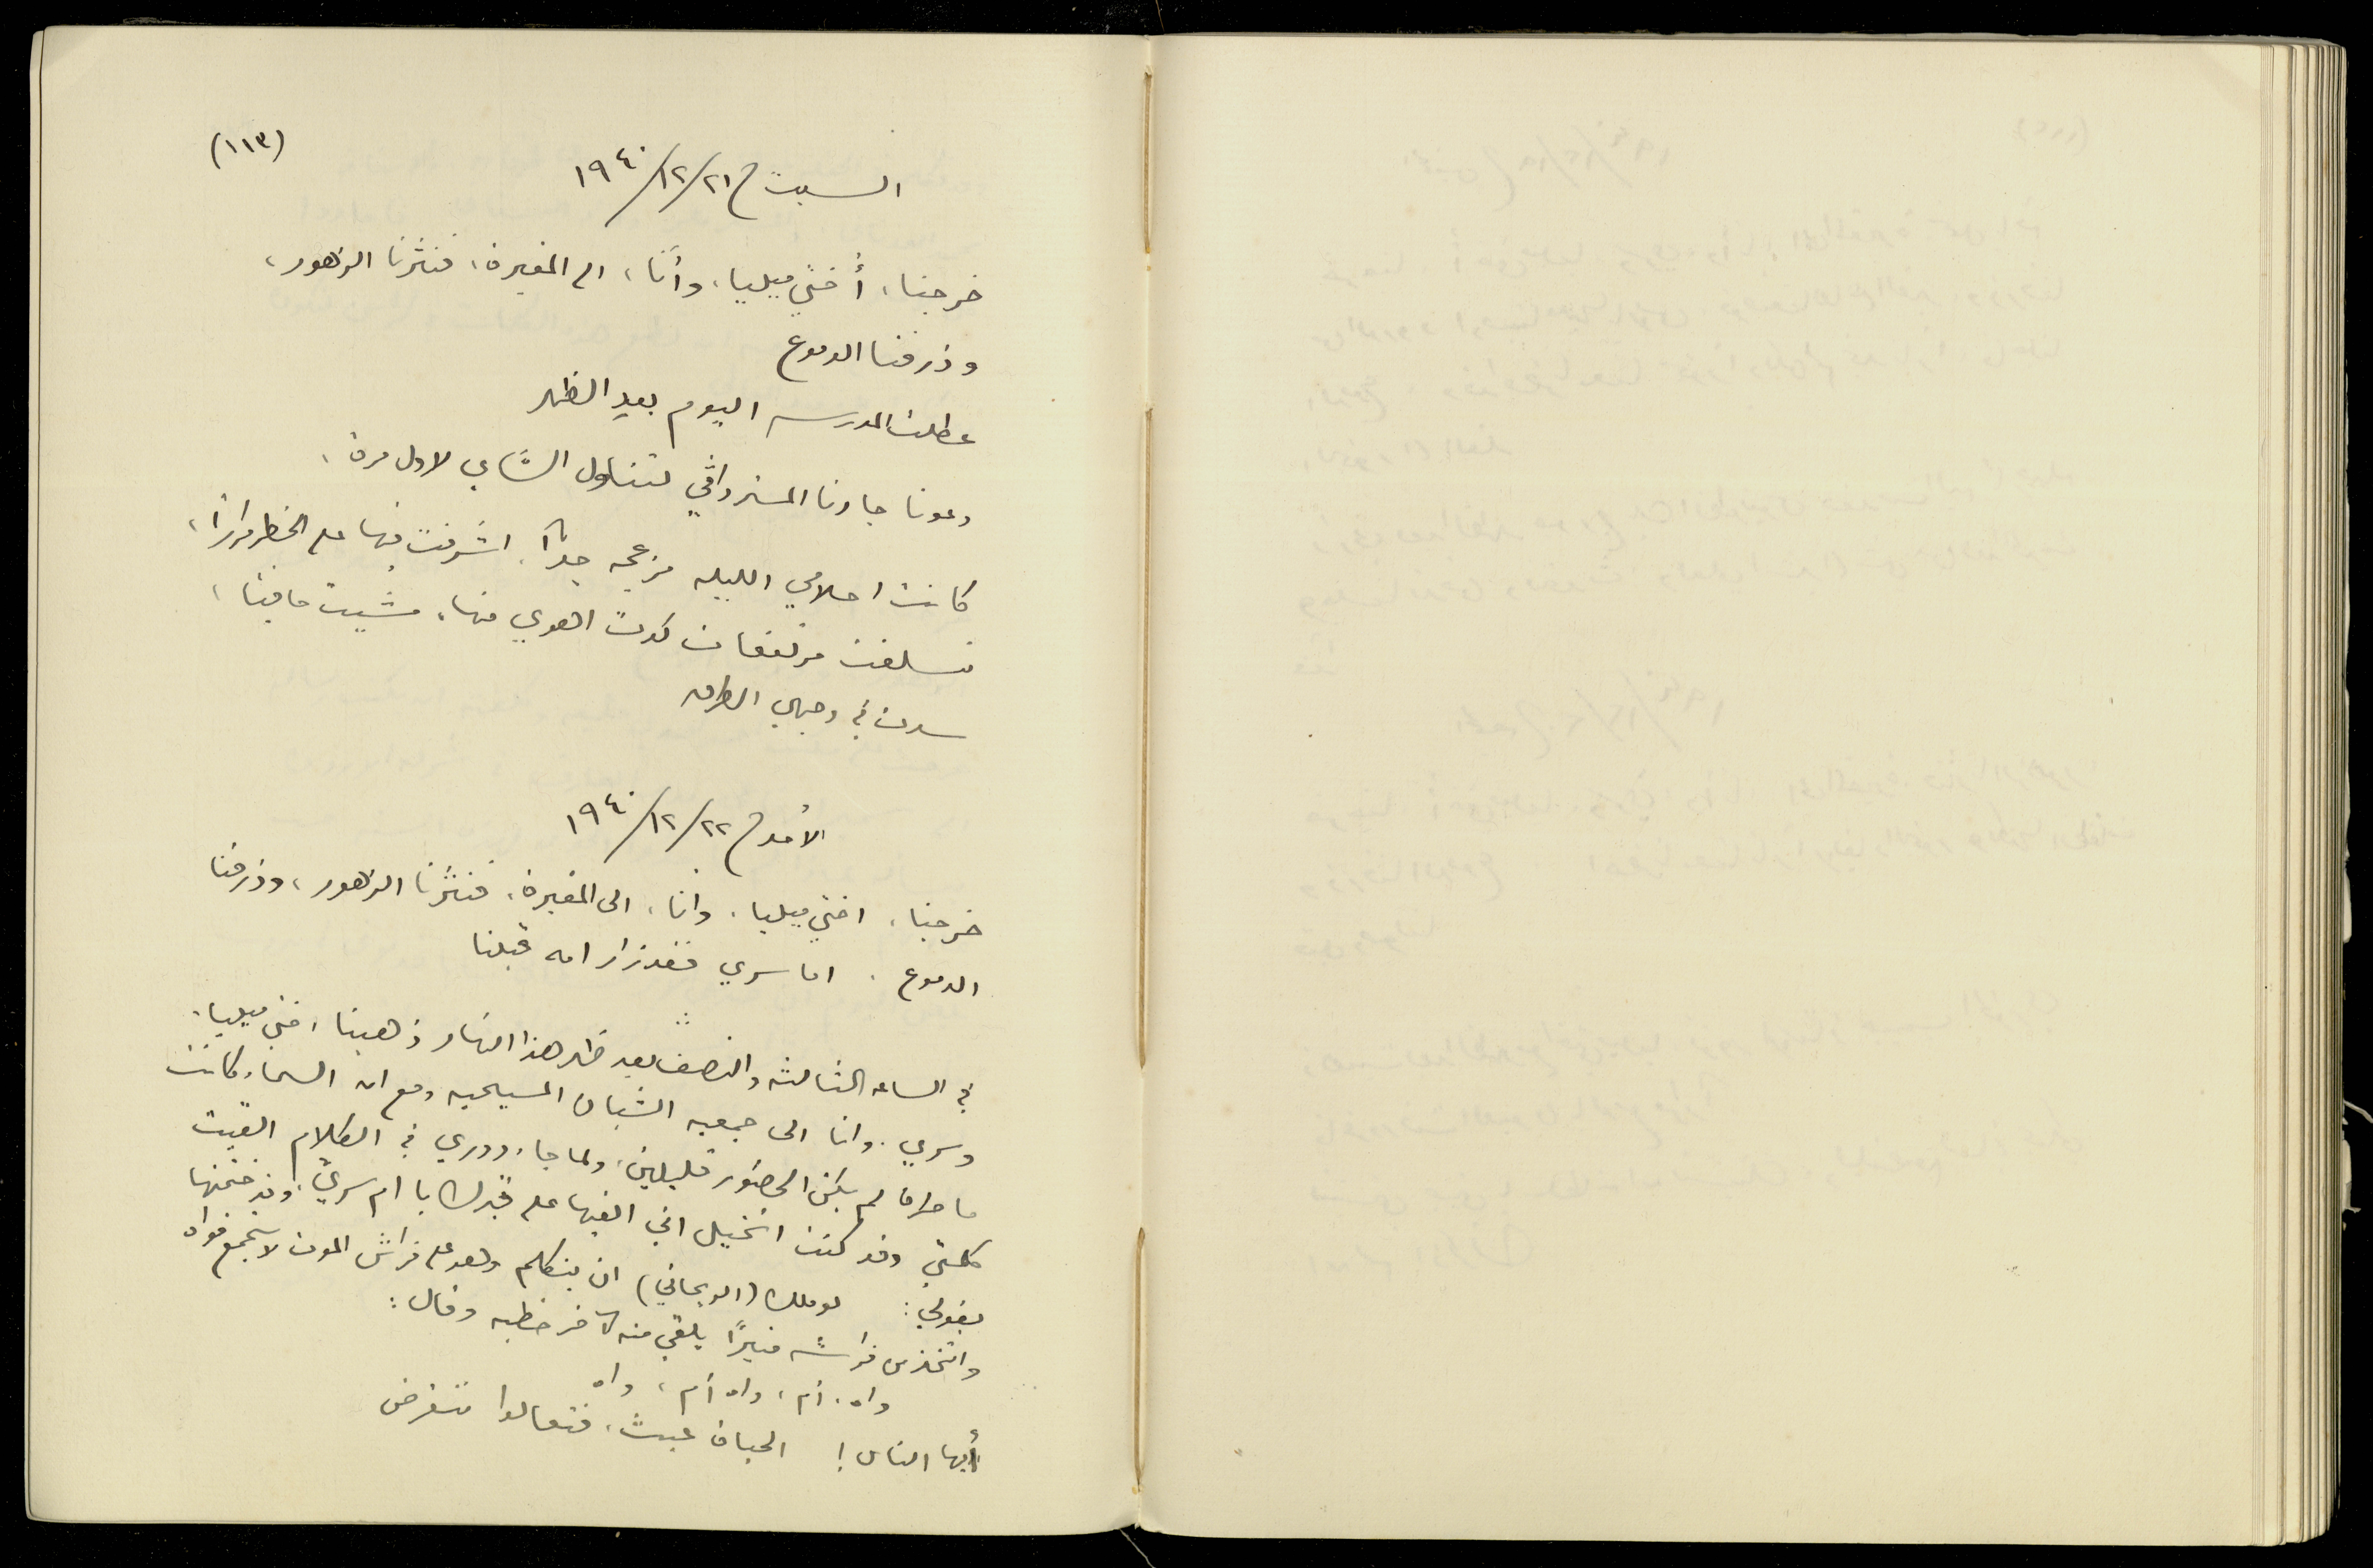 (١١٣)
السبت في ٢١/١٢/١٩٤٠
خرجنا، أختي ميليا، وأنا، الى المقبرة، فنثرنا الزهور،
وذرفنا الدموع
عطلت المدرسه اليوم بعد الظهر
دعونا جارنا المستر واتي لتناول الشاي لاول مرة،
كانت احلامي الليله مزعجه جداً، اشرفت فيها على الخطر مراراً،
تسلقت مرتفعات كدت اهوي منها، مشيت حافياً،
سدت في وجهي الطرق
الأحد في ٢٢/١٢/١٩٤٠
خرجنا، اختي ميليا، وانا، الى المقبرة، فنثرنا الزهور، وذرفنا
الدموع. اما سري فقد زار امه قبلنا
في الساعه الثالثه والنصف بعد ظهر هذا النهار ذهبنا، اختي ميليا،
وسري، وانا الى جمعيه الشبان المسيحيه ومع ان السماء كانت
ماطرة لم يكن الحضور قليلين، ولما جاء دوري في الكلام القيت
كلمتي وقد كنت اتخيل اني القيها على قبرك يا ام سري، وقد ختمتها
بقولي: لو ملك (الريحاني) ان يتكلم وهو على فراش الموت لاستجمع قواه
واتخذ من فراشه منبراً يلقي منه آخر خطبه وقال:
واه، أم، واه أم، واه
أيها الناس! الحياة عبث، فتعالوا ننقرض